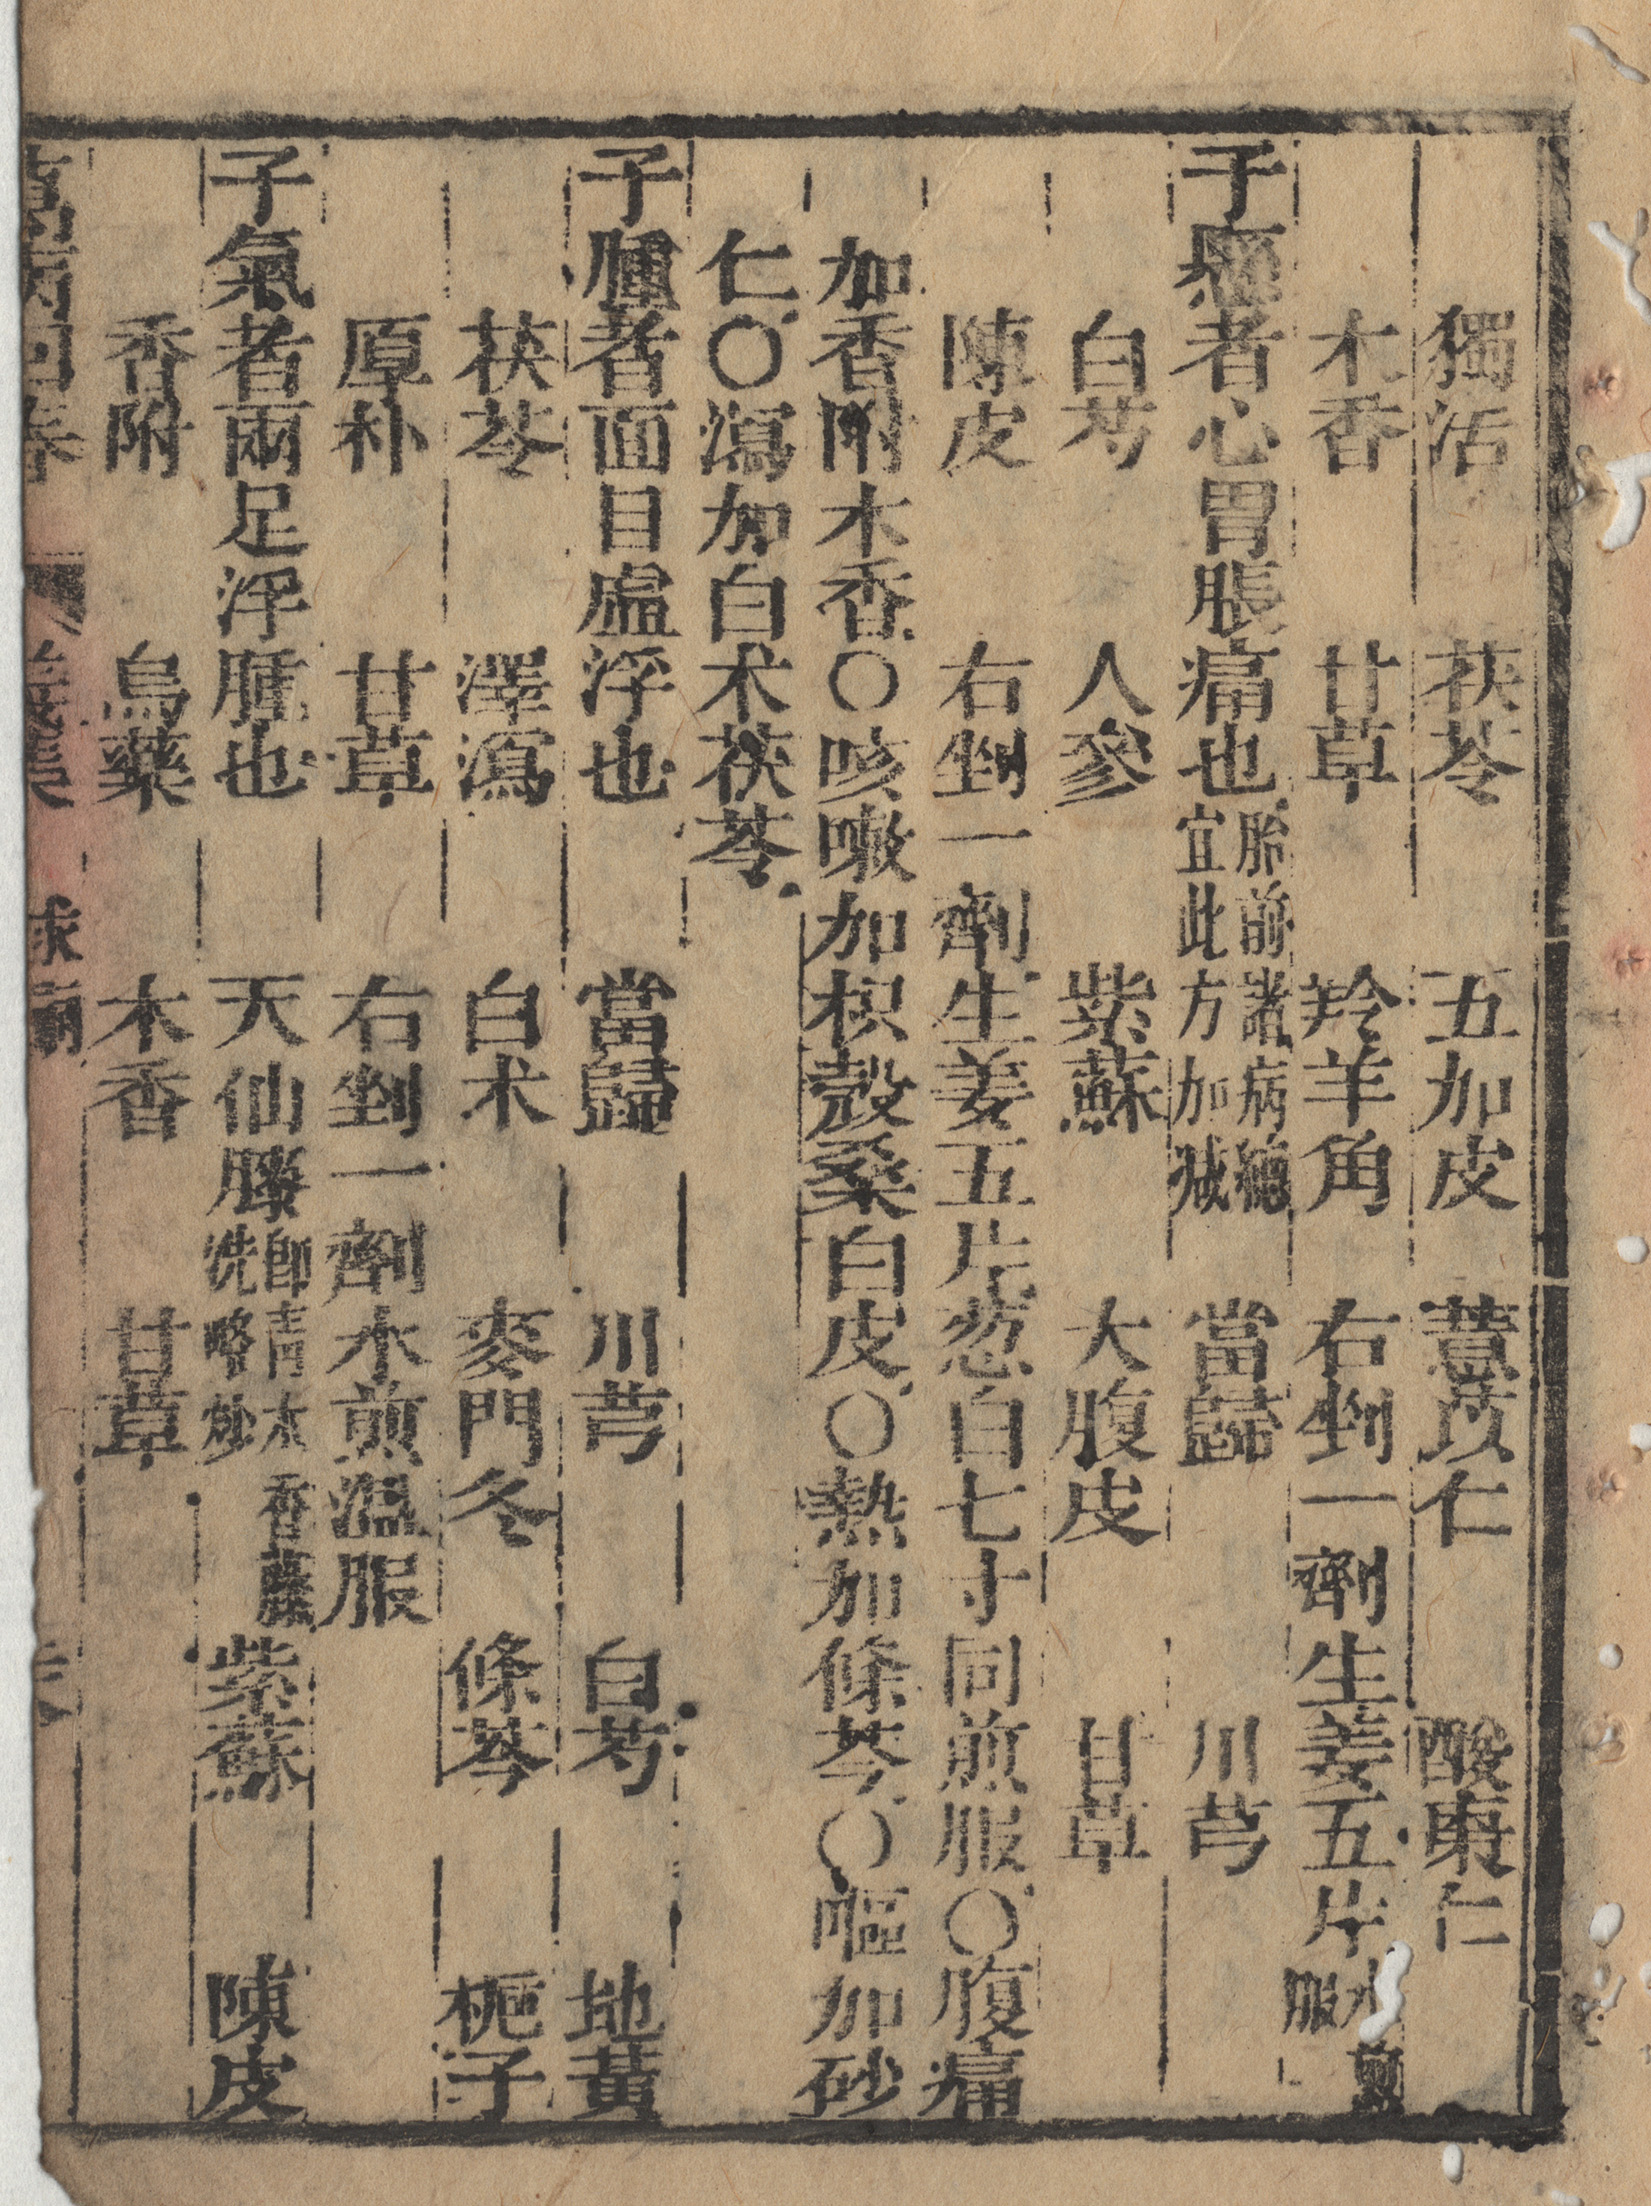 獨活 茯苓 五加皮 薏苡仁 酸棗仁
木香 甘草 羚羊角 右剉一劑生姜五片水煎服
子懸者心胃脹痛也胎前諸病總宜此方加减 當歸 川芎
白芍 人參 紫蘇 大腹皮 甘草
陳皮 右剉一劑生姜五片葱白七寸同煎服〇腹痛
加香附木香〇咳嗽加枳殼桑白皮〇熱加條芩〇嘔加砂
仁〇瀉加白术茯苓
子腫者面目虛浮也 當歸 川芎 白芍 地黃
茯苓 澤瀉 白术 麥門冬 條芩 梔子
厚朴 甘草 右剉一劑水煎溫服
子氣者兩足浮腫也 天仙藤即青木香藤洗略炒 紫蘇 陳皮
香附 烏藥 木香 甘草
萬病回春